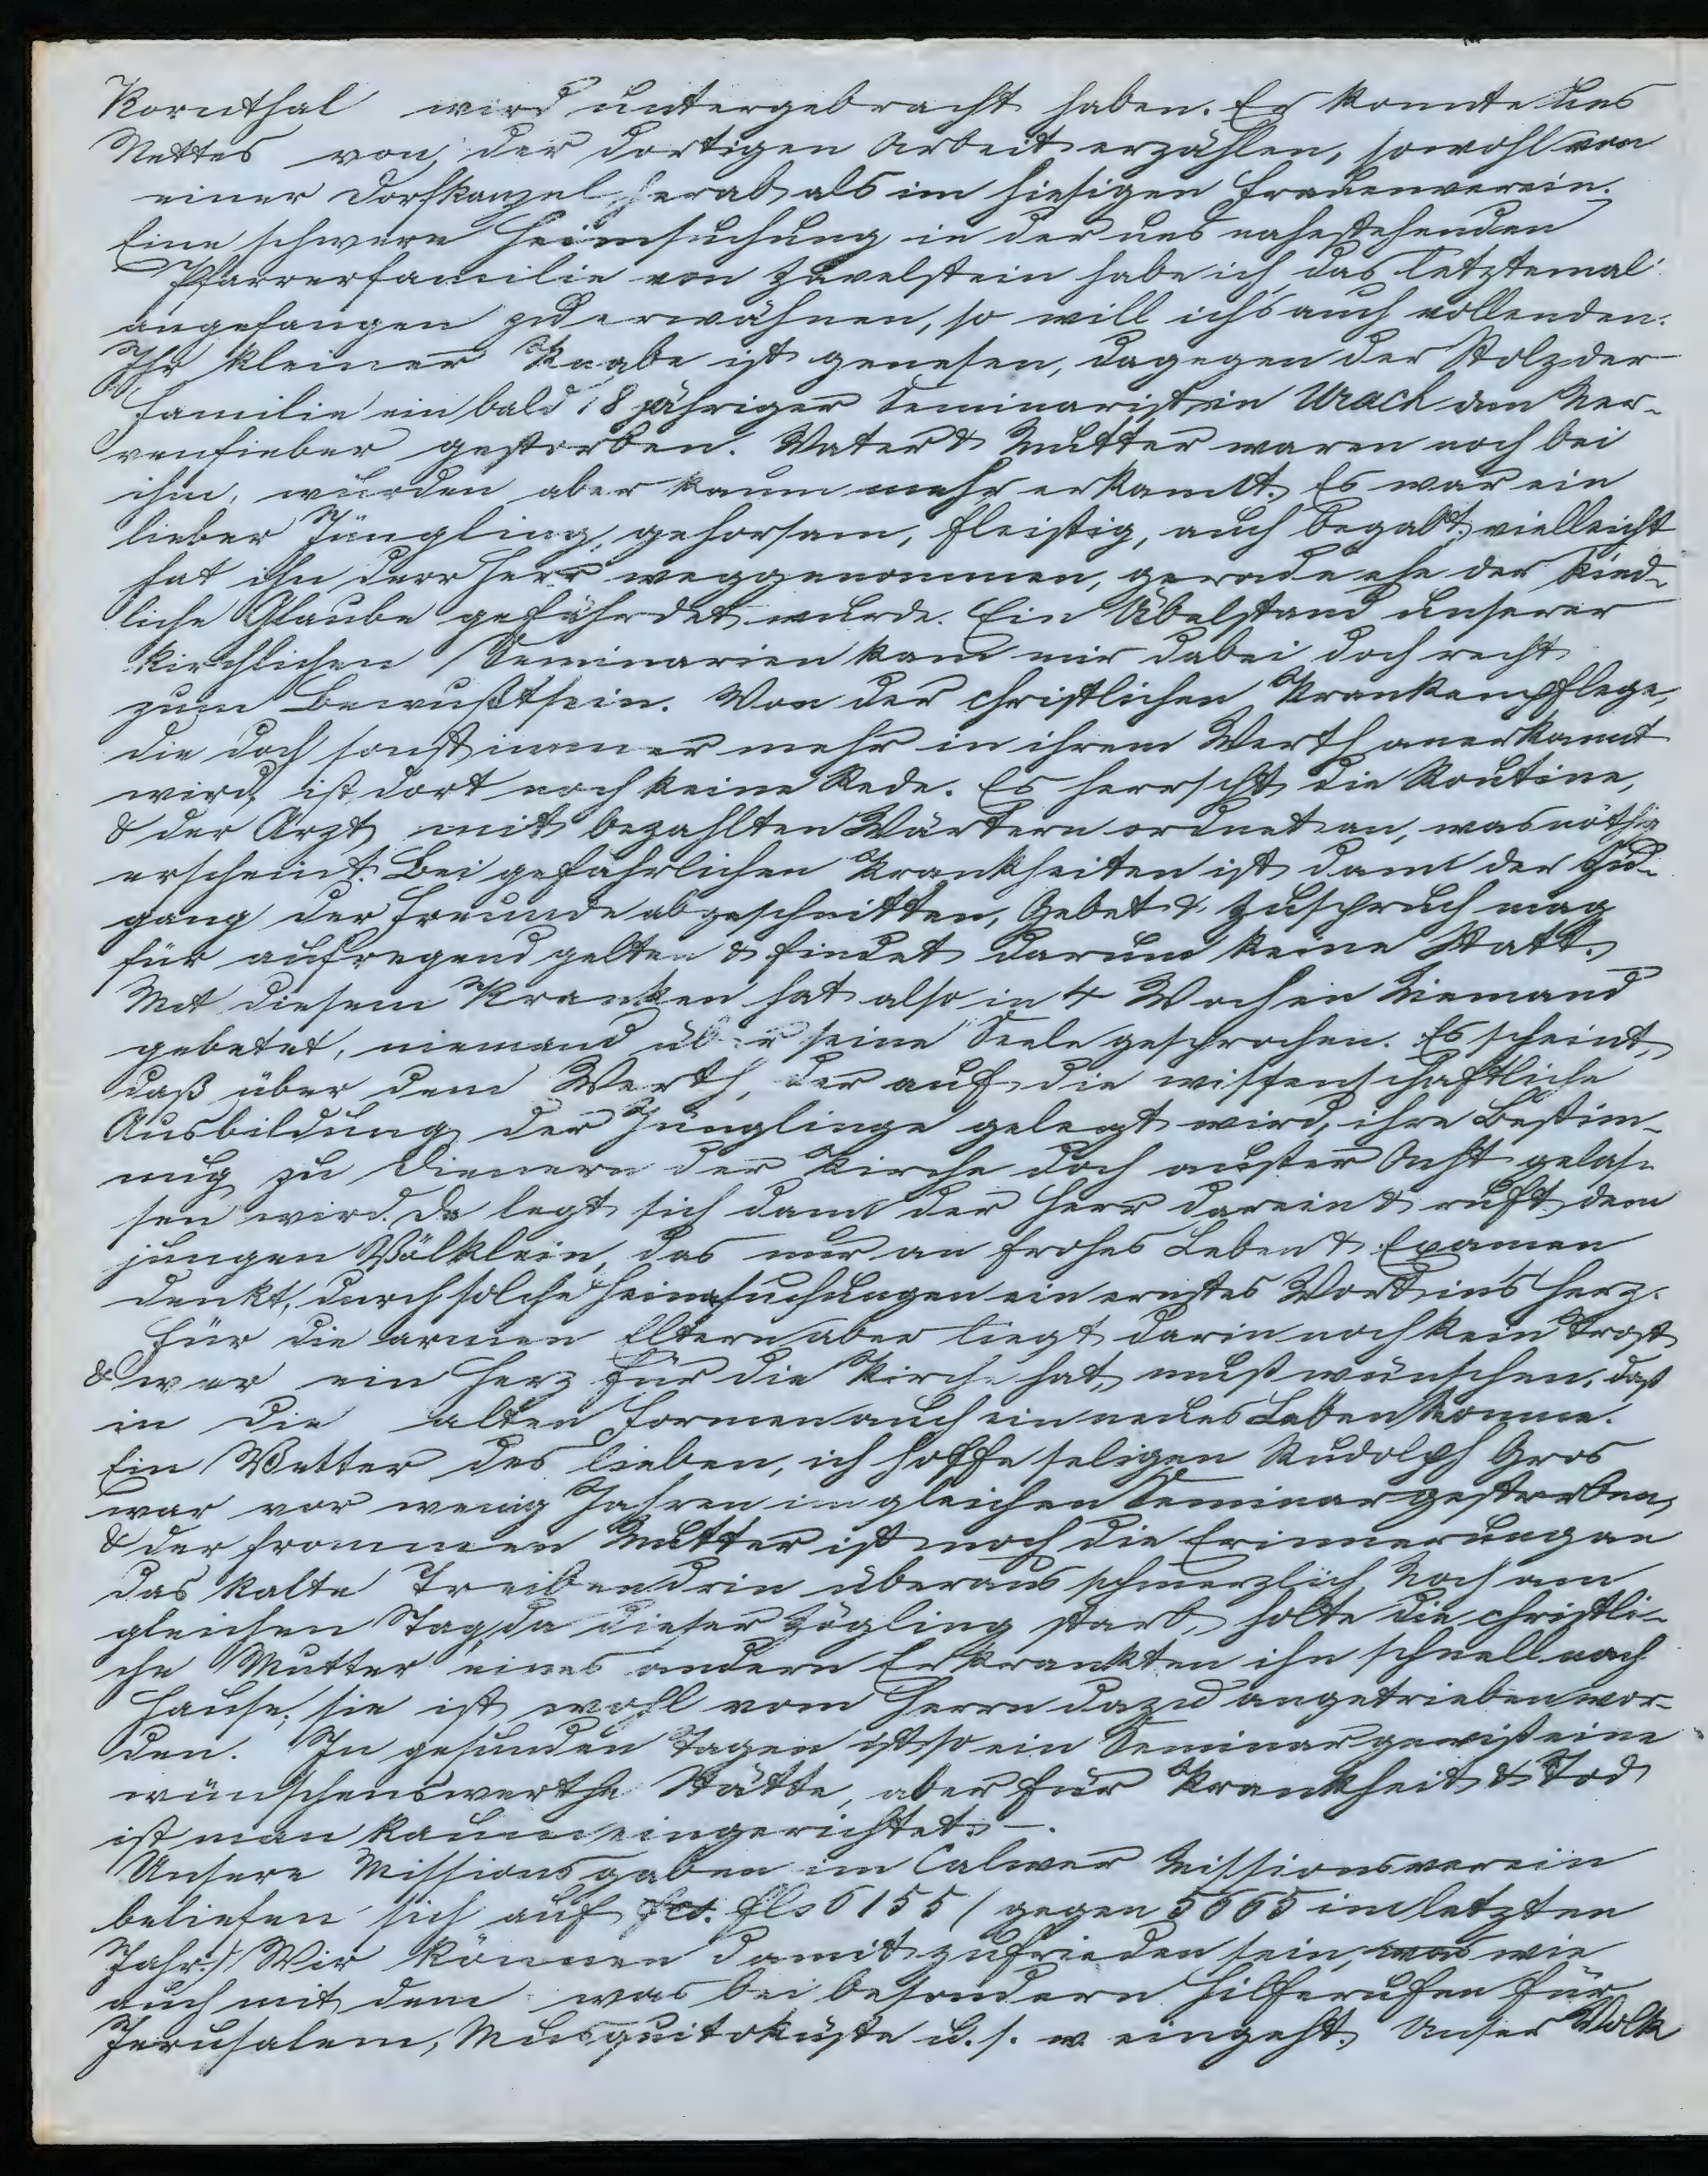 Kornthal wird untergebracht haben. Er konnte uns
Nettes von der dortigen Arbeit erzählen, sowohl von
einer Dorfkanzel herab als im hiesigen Frauenverein.
Eine schwere Heimsuchung in der uns nahestehenden
Pfarrerfamilie von Zavelstein habe ich das letztemal
angefangen zu erwähnen, so will ichs auch vollenden.
Ihr kleiner Knabe ist genesen, dagegen der Stolz der
Familie ein bald 18 jähriger Seminarist in Urach am Ner-
venfieber gestorben. Vater & Mutter waren noch bei
ihm, wurden aber kaum mehr erkannt. Es war ein
lieber Jüngling, gehorsam, fleißig, auch begabt; vielleicht
hat ihn der Herr weggenommen, gerade ehe der kind-
liche Glaube gefährdet wurde. Ein Übelstand unserer
kirchlichen Seminarien kam mir dabei doch recht
zum Bewußtsein. Von der christlichen Krankenpflege,
die doch sonst immer mehr in ihrem Werth anerkannt
wird, ist dort noch keine Rede. Es herrscht die Routine,
& der Arzt mit bezahlten Wärtern ordnet an, was nöthig
erscheint. Bei gefährlichen Krankheiten ist dann der Zu-
gang der Freunde abgeschnitten, Gebet & Zuspruch mag
für aufregend gelten & findet darum keine Statt.
Mit diesem Kranken hat also in 4 Wochen Niemand
gebetet, niemand über seine Seele gesprochen. Es scheint,
daß über dem Werth, der auf die wissenschaftliche
Ausbildung der Jünglinge gelegt wird, ihre Bestim-
mug zu Dienern der Kirche doch außer Acht gelas-
sen wird. Da legt sich dann der Herr darein & ruft dem
jungen Völklein, das nur an frohes Leben & Examen
denkt, durch solche Heimsuchungen ein ernstes Wort ins Herz.
Für die armen Eltern aber liegt darin noch kein Trost
& wer ein Herz für die Kirche hat, muß wünschen, daß
in die alten Formen auch ein neues Leben komme.
Ein Vetter des lieben, ich hoffe seligen Rudolph Gros
war vor wenig Jahren im gleichen Seminar gestorben,
& der frommen Mutter ist noch die Erinnerung an
das kalte Treiben drin überaus schmerzlich. Noch am
gleichen Tag, da dieser Zögling starb, holte die christli-
che Mutter eines andern Erkrankten ihn schnell nach
Hause; sie ist wohl vom Herrn dazu angetrieben wor-
den. In gesunden Tagen ist so ein Seminar gewiß eine
wünschenswerthe Stätte, aber für Krankheit & Tod
ist man kaum eingerichtet. –
Unsere Missionsgaben im Calwer Missionsverein
beliefen sich auf fls 6155 / gegen 5665 im letzten
Jahr./ Wir können damit zufrieden sein, was wie
auch mit dem was bei besondern Hilferufen für
Jerusalem, Musquitoküste u. s. w. eingeht. Unser Volk